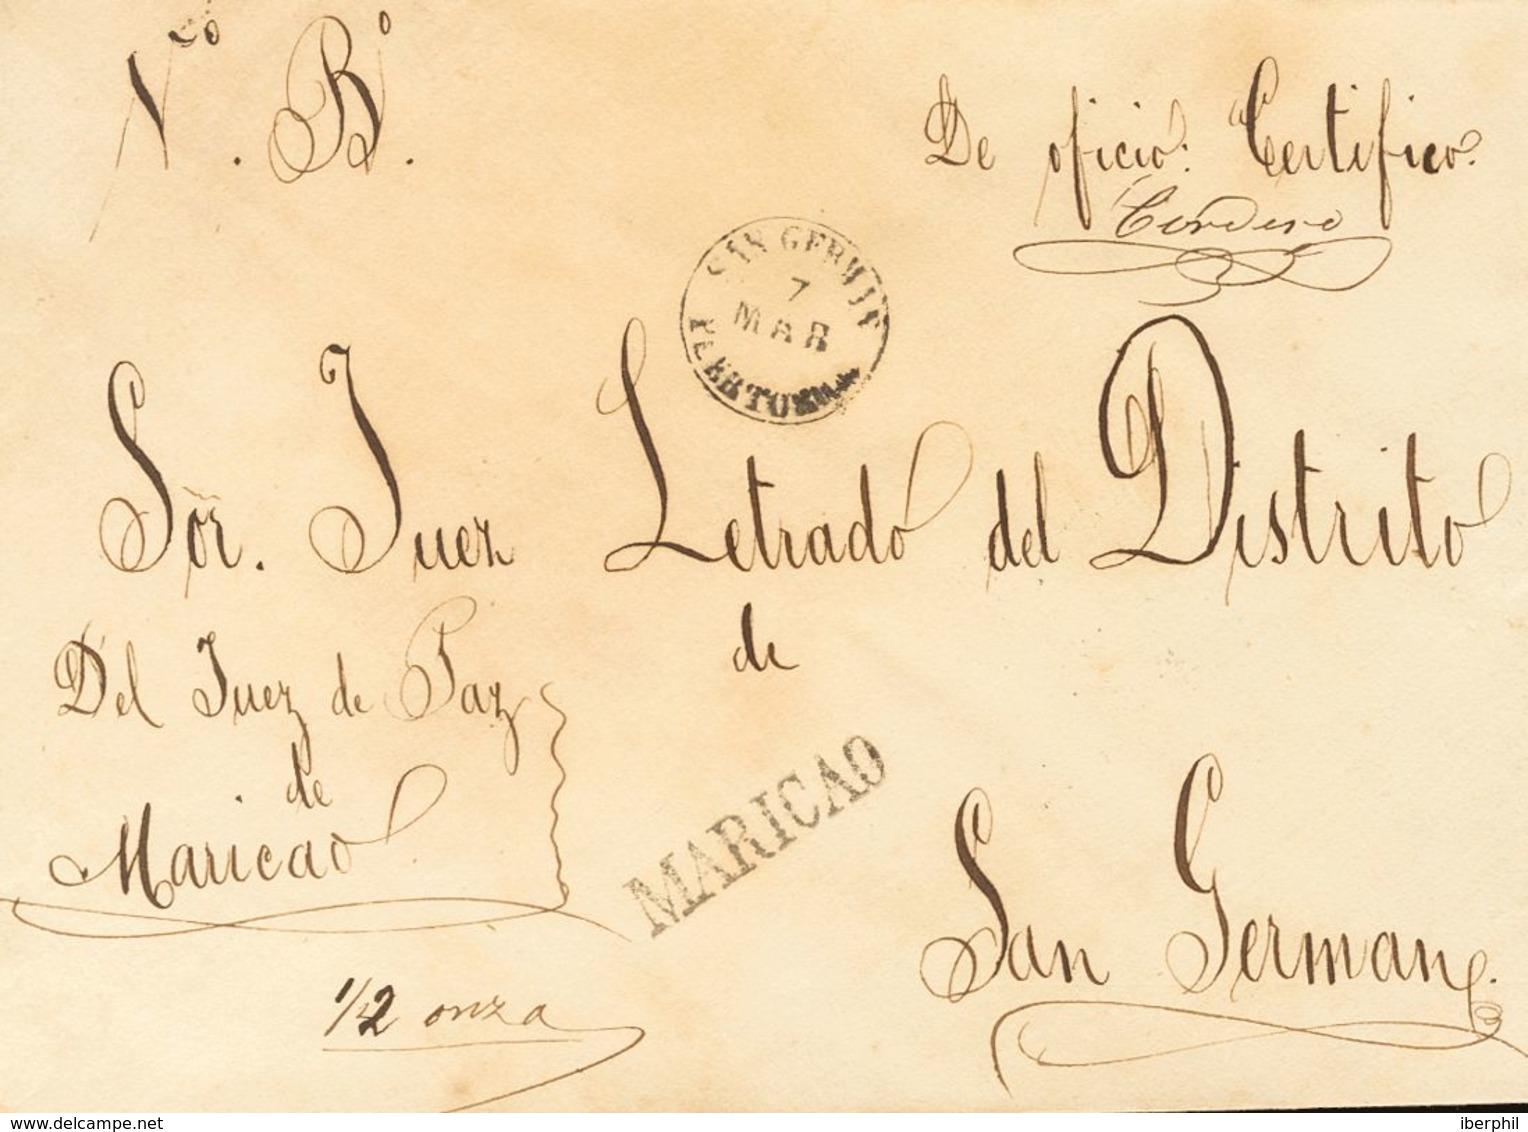 Nco. Bo.
De oficio: Certifico.
Cordero
SAN GERMAN
7
MAR
PUERTO
Sor. Juez Letrado del Distrito
de
San German.
Del Juez de Paz
de
Maricao
MARICAO
1/2 onza
www.delcampe.net
iberphil